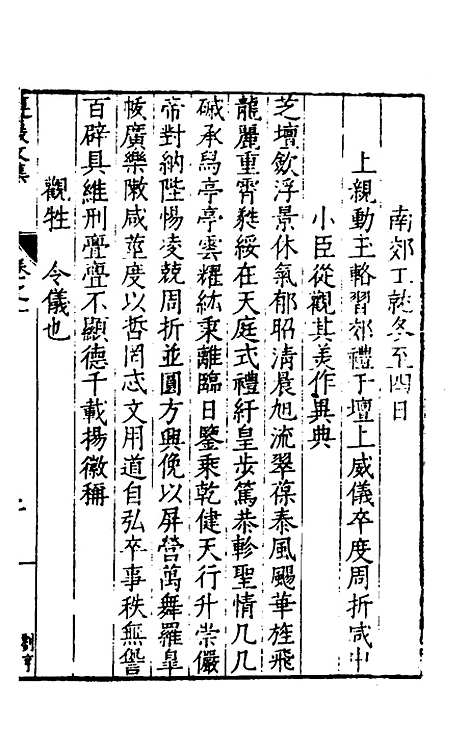 南郊工就冬至四日
上親動玉輅習郊禮于壇上威儀卒度周折咸中
小臣從觀其美作異典
芝壇歛浮景休氣郁昭清晨旭流翠葆泰風颺華旌飛
龍麗重霄甤綏在天庭式禮紆皇步篤恭軫聖情几几
碱承舄亭亭雲耀紘秉離臨日鑒乘乾健天行升崇儼
帝對納陛惕凌兢周折並圓方興俛以屏營萬舞羅皇
帗廣樂陳咸莖度以哲罔忒文用道自弘卒事秩無諐
百辟具維刑亹亹不顯德千載揚徽稱
觀牲 令儀也
文集
卷之一